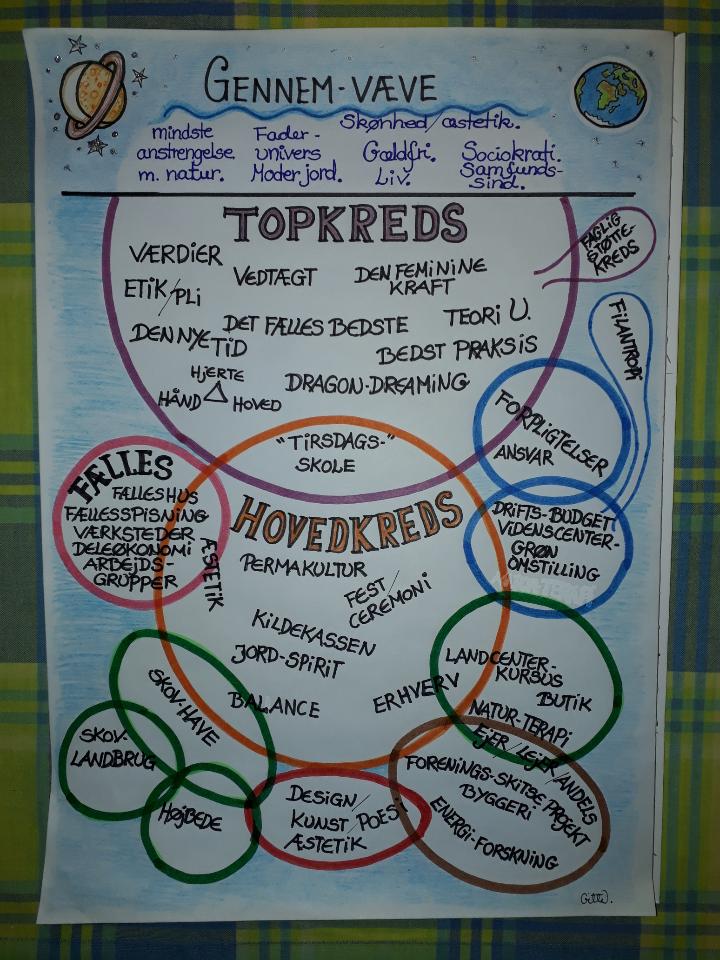 GENNEM-VÆVE
mindste
anstrengelse.
m. natur.
Fader-
univers
Moder jord.
Skønhed/æstetik.
Gældfri.
Liv.
Sociokrati.
Samfunds-
sind.
TOPKREDS
VÆRDIER
VEDTÆGT
DEN FEMININE
KRAFT
ETIK/PLI
DET FÆLLES BEDSTE
TEORI U.
DEN NYE TID
BEDST PRAKSIS
HJERTE
HÅND
HOVED
DRAGON-DREAMING
FAGLIG
STØTTE-
KREDS
FILANTROPI
FORPLIGTELSER
ANSVAR
"TIRSDAGS-"
SKOLE
FÆLLES
FÆLLESHUS
FÆLLESSPISNING
VÆRKSTEDER
DELEØKONOMI
ARBEJDS-
GRUPPER
ÆSTETIK
HOVEDKREDS
PERMAKULTUR
FEST/
CEREMONI
KILDEKASSEN
JORD-SPIRIT
BALANCE
ERHVERV
DRIFTS-BUDGET
VIDENSCENTER-
GRØN
OMSTILLING
LANDCENTER-
KURSUS
BUTIK
NATUR-TERAPI
EJER/LEJER/ANDELS
FORENINGS-SKITSE PROJEKT
BYGGERI
ENERGI-FORSKNING
SKOV-HAVE
SKOV-
LANDBRUG
HØJBEDE
DESIGN/
KUNST/POESI
ÆSTETIK